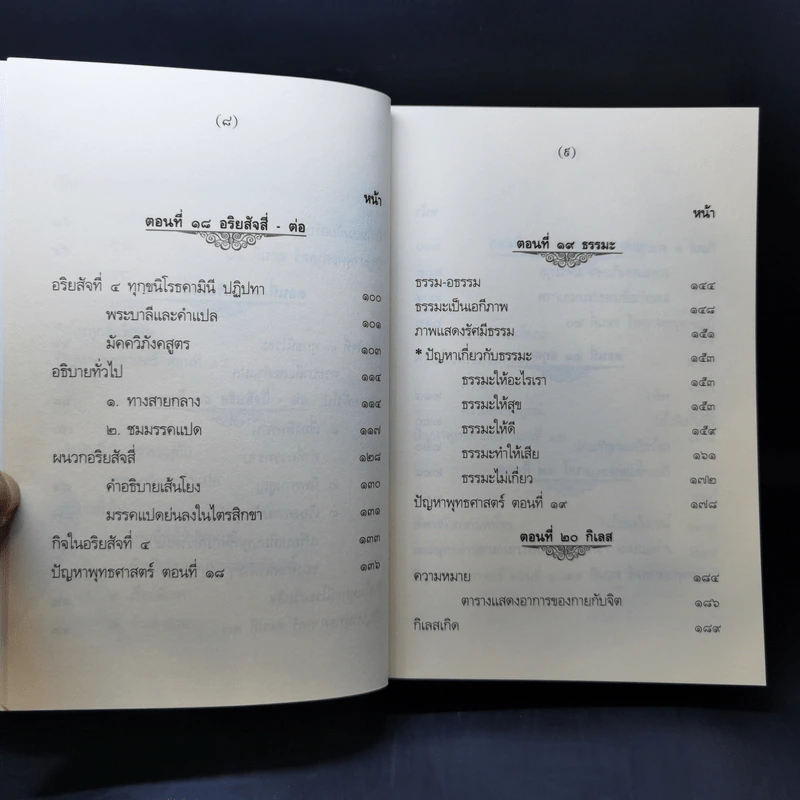 (๘)
หน้า
ตอนที่ ๑๘ อริยสัจสี่ - ต่อ
อริยสัจที่ ๔ ทุกฺขนิโรธคามินี ปฏิปทา ๑๐๐
พระบาลีและคำแปล ๑๐๑
มัคควิภังคสูตร ๑๐๓
อธิบายทั่วไป ๑๑๔
๑. ทางสายกลาง ๑๑๔
๒. ชมมรรคแปด ๑๑๗
ผนวกอริยสัจสี่ ๑๒๘
คำอธิบายเส้นโยง ๑๓๐
มรรคแปดย่นลงในไตรสิกขา ๑๓๑
กิจในอริยสัจที่ ๔ ๑๓๓
ปัญหาพุทธศาสตร์ ตอนที่ ๑๘ ๑๓๖
(๙)
หน้า
ตอนที่ ๑๙ ธรรมะ
ธรรม-อธรรม ๑๔๔
ธรรมะเป็นเอกีภาพ ๑๔๘
ภาพแสดงรัศมีธรรม ๑๕๑
* ปัญหาเกี่ยวกับธรรมะ ๑๕๓
ธรรมะให้อะไรเรา ๑๕๓
ธรรมะให้สุข ๑๕๓
ธรรมะให้ดี ๑๕๙
ธรรมะทำให้เสีย ๑๖๑
ธรรมะไม่เกี่ยว ๑๗๒
ปัญหาพุทธศาสตร์ ตอนที่ ๑๙ ๑๗๘
ตอนที่ ๒๐ กิเลส
ความหมาย ๑๘๔
ตารางแสดงอาการของกายกับจิต ๑๘๖
กิเลสเกิด ๑๘๙